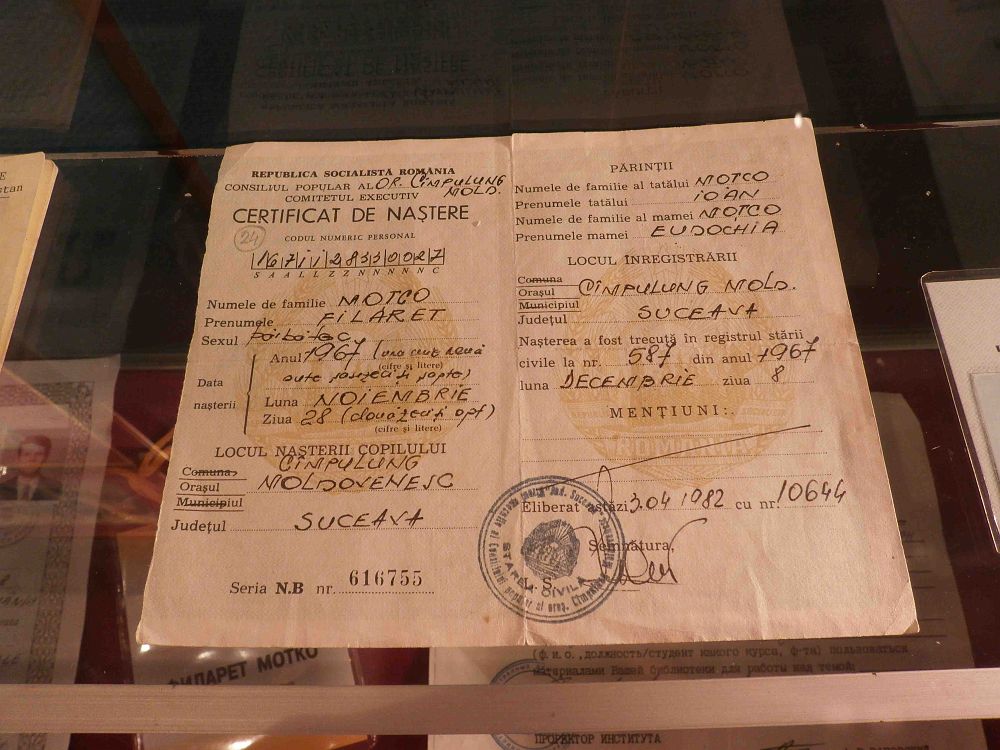 REPUBLICA SOCIALISTĂ ROMÂNIA
CONSILIUL POPULAR AL OR. CÎMPULUNG
MOLD.
COMITETUL EXECUTIV
CERTIFICAT DE NAȘTERE
24
CODUL NUMERIC PERSONAL
1671128330027
S A A L L Z Z N N N N N C
Numele de familie MOTCO
Prenumele FILARET
Sexul bărbătesc
Data nașterii
Anul 1967 (una mie nouă
(cifre și litere)
sute șaizeci și șapte)
Luna NOIEMBRIE
Ziua 28 (douăzeci și opt)
(cifre și litere)
LOCUL NAȘTERII COPILULUI
Comuna
Orașul
Municipiul
CÎMPULUNG
MOLDOVENESC
Județul SUCEAVA
Seria N.B nr. 616755
PĂRINȚII
Numele de familie al tatălui MOTCO
Prenumele tatălui IOAN
Numele de familie al mamei MOTCO
Prenumele mamei EUDOCHIA
LOCUL ÎNREGISTRĂRII
Comuna
Orașul
Municipiul
CÎMPULUNG MOLD.
Județul SUCEAVA
Nașterea a fost trecută în registrul stării
civile la nr. 587 din anul 1967
luna DECEMBRIE ziua 8
MENȚIUNI:
Eliberat astăzi 3.04 1982 cu nr. 10644
Semnătura,
L. S.
STAREA CIVILĂ
ФИЛАРЕТ МОТКО
(ф.и.о., должность/студент какого курса, ф-та) пользоваться
материалами Вашей библиотеки для работы над темой:
ПРОРЕКТОР ИНСТИТУТА